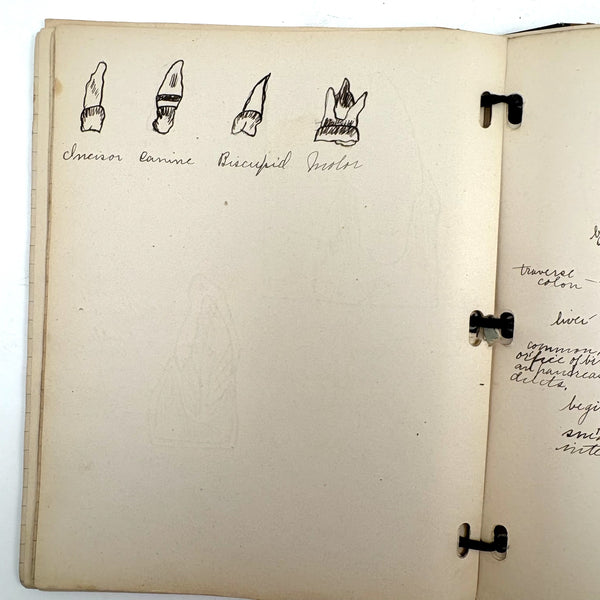 Incisor Canine Biscupid Molor
traverse
colon
liver
common
orfice of bi
an pancrea
ducts.
begi
inte